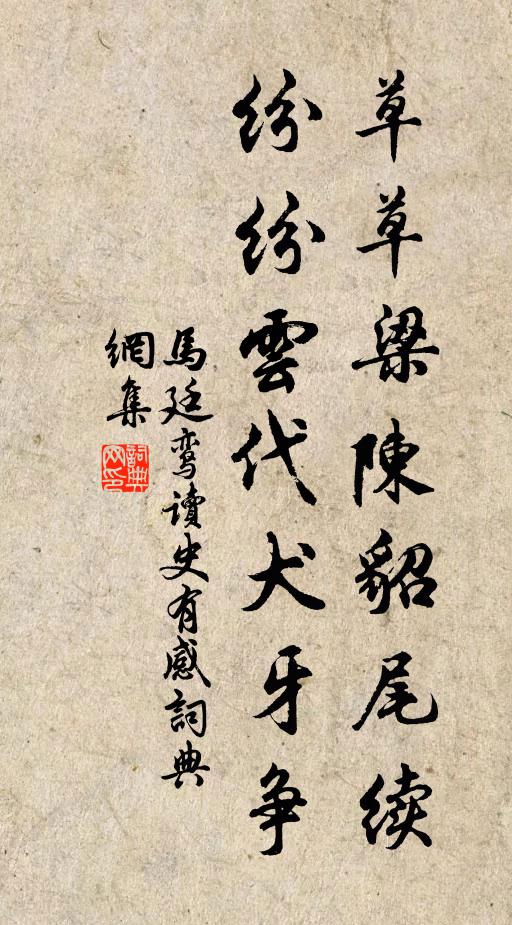 草草梁陳貂尾续
紛紛雲代犬牙争
馬廷鸾讀史有感詞典
網集
詞典网印